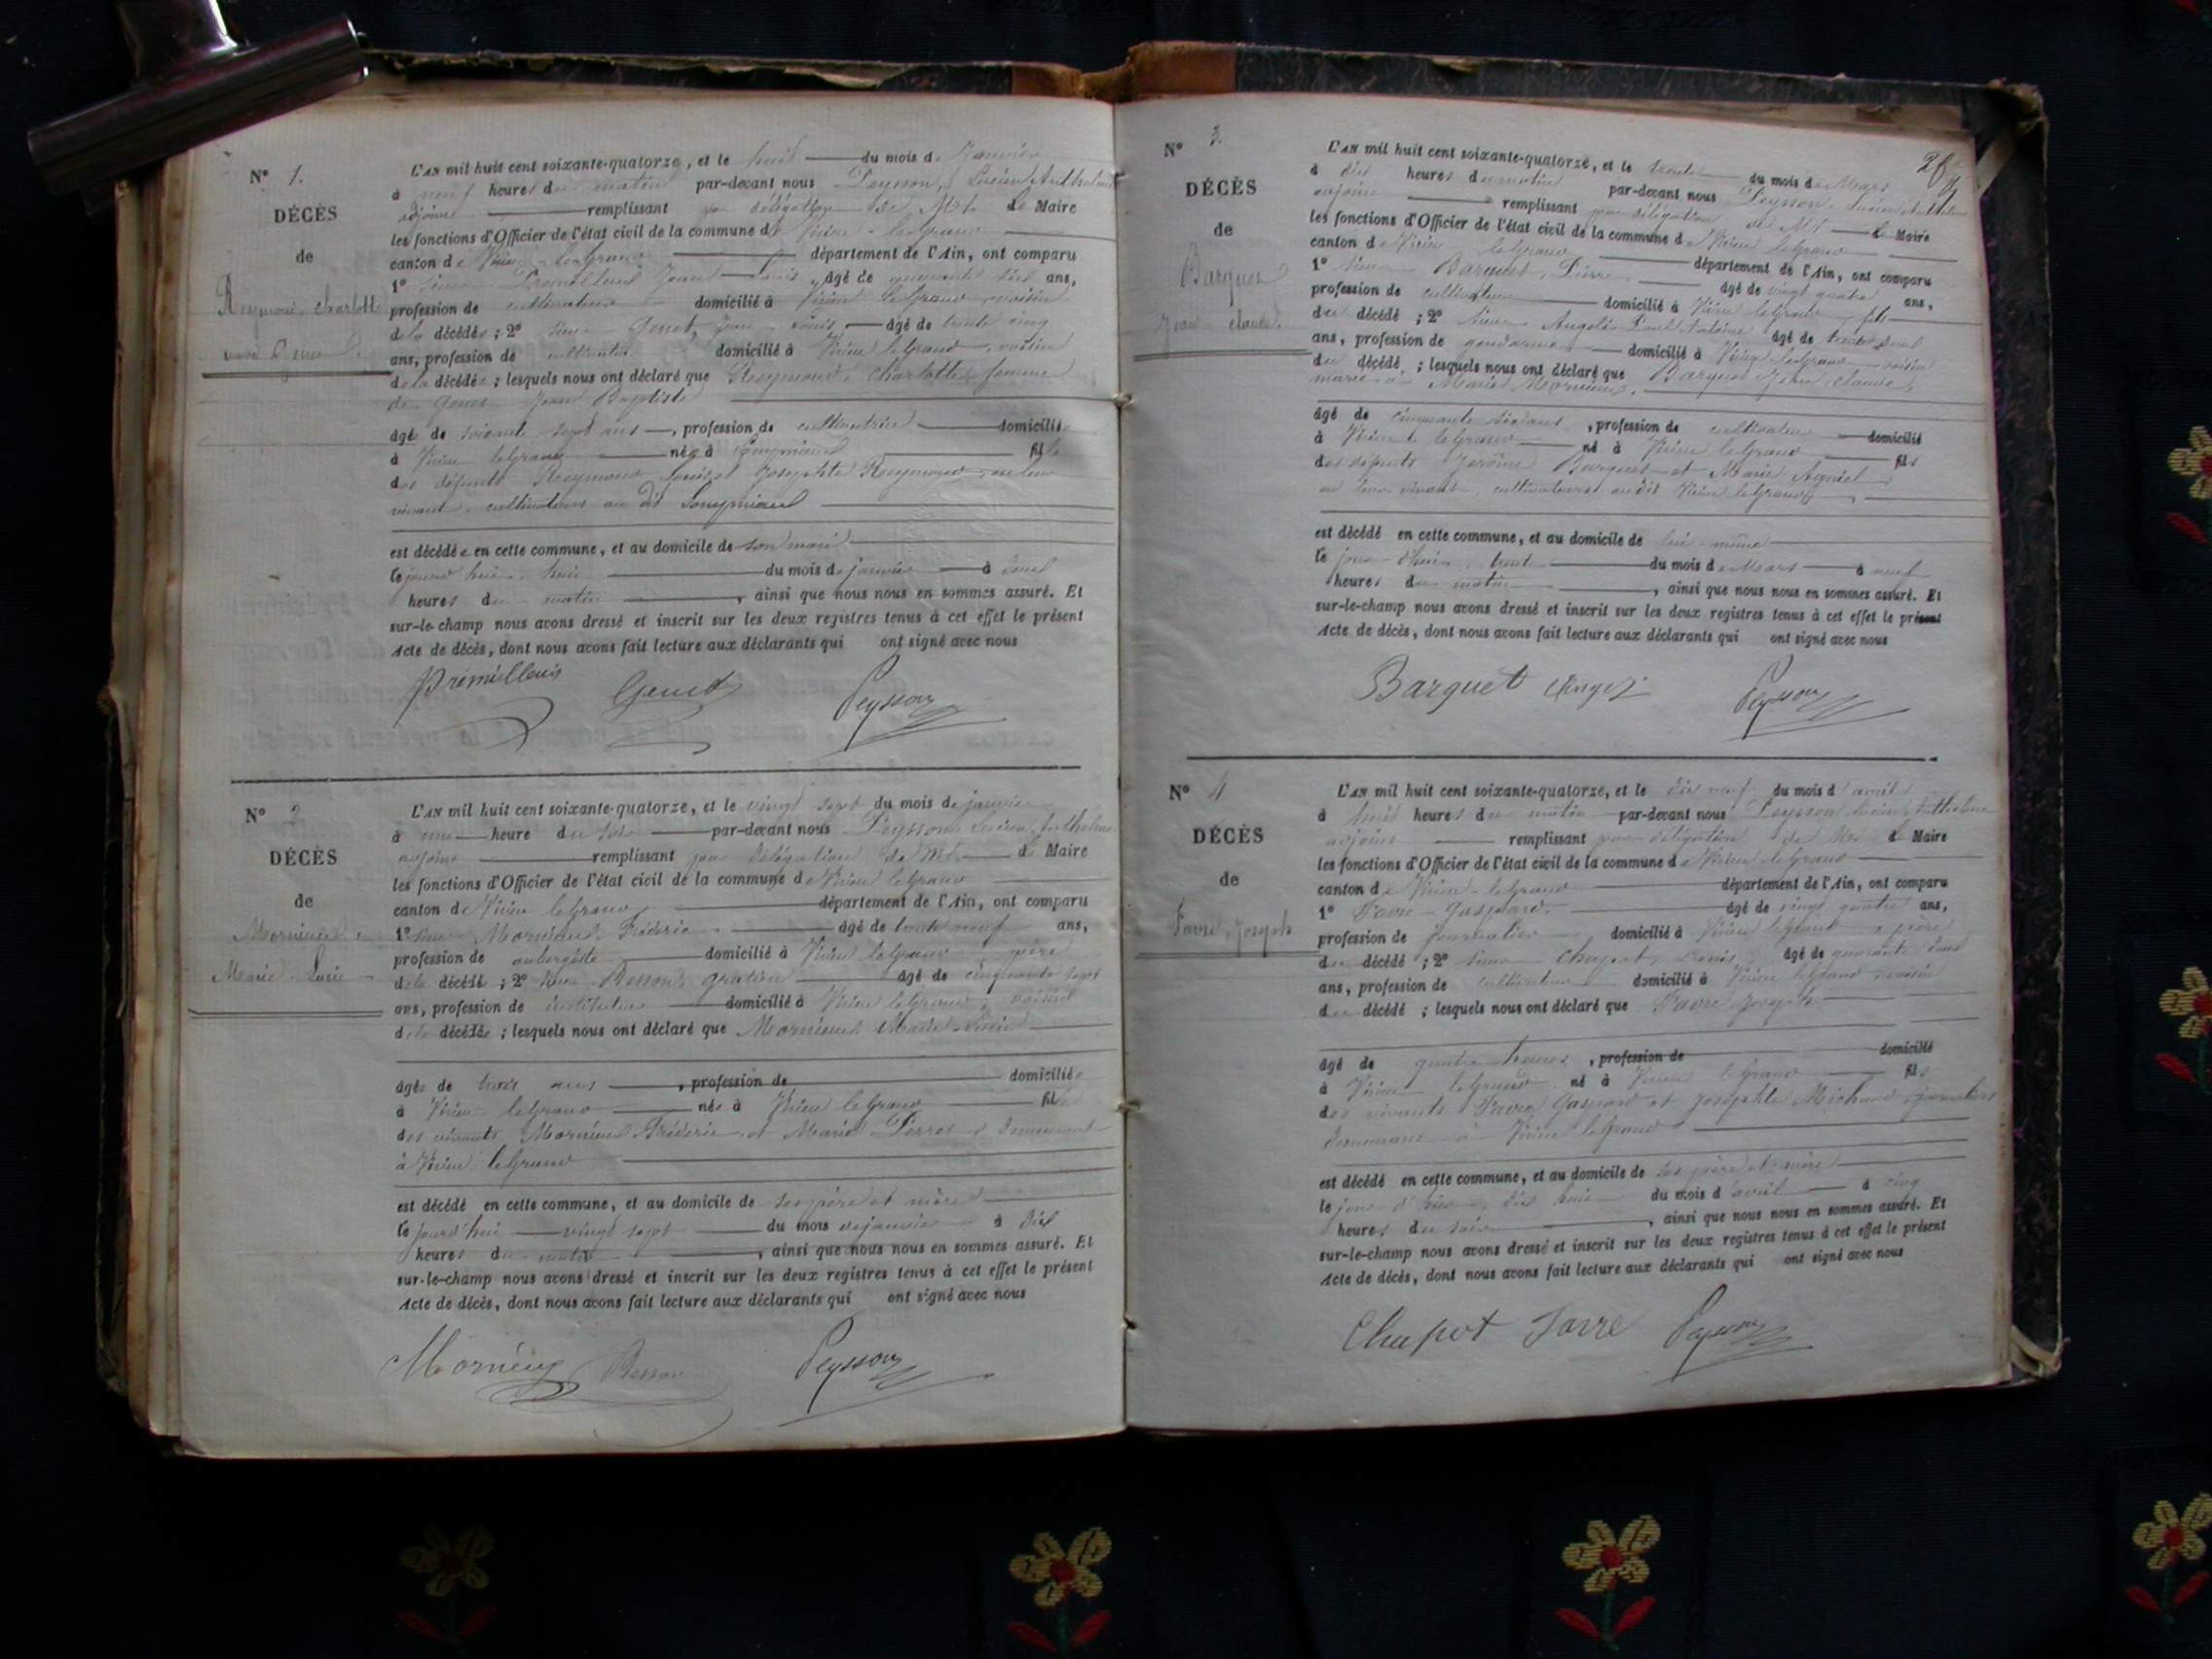 N° 1.
DÉCÈS
de
Reymond, charlotte
L'AN mil huit cent soixante-quatorze, et le huit du mois de Janvier
à neuf heures du matin par-devant nous Peysson, Lucien Anthelme
adjoint remplissant par délégation de Mr le Maire
les fonctions d'Officier de l'état civil de la commune de Virieu-le Grand
canton de Virieu-le Grand département de l'Ain, ont comparu
1° sieur Premillieu Jean Louis, âgé de ans,
profession de cultivateur domicilié à Virieu le Grand voisin
de la décédée ; 2° sieur Genet, Jean Louis, âgé de trente cinq
ans, profession de cultivateur domicilié à Virieu le Grand, voisin
de la décédée ; lesquels nous ont déclaré que Reymond, Charlotte, femme
de Genet Jean Baptiste
âgé de soixante sept ans, profession de cultivatrice domicilié
à Virieu le Grand née à fille
des défunts Reymond Louis et Josephte Reymond, en leur
vivant, cultivateurs au dit
est décédée en cette commune, et au domicile de son mari
le jourd'hui, huit du mois de janvier à deux
heures du matin, ainsi que nous nous en sommes assuré. Et
sur-le-champ nous avons dressé et inscrit sur les deux registres tenus à cet effet le présent
Acte de décès, dont nous avons fait lecture aux déclarants qui ont signé avec nous
Prémillieu Genet Peysson
N° 2
DÉCÈS
de
Mornieux,
Marie-Lucie
L'AN mil huit cent soixante-quatorze, et le vingt sept du mois de janvier
à une heure du soir par-devant nous Peysson, Lucien Anthelme
adjoint remplissant par délégation de Mr le Maire
les fonctions d'Officier de l'état civil de la commune de Virieu le Grand
canton de Virieu le Grand département de l'Ain, ont comparu
1° sieur Mornieux, Fréderic âgé de trente neuf ans,
profession de aubergiste domicilié à Virieu le Grand père
de la décédée ; 2° sieur Besson, gratien âgé de cinquante sept
ans, profession de instituteur domicilié à Virieu le Grand, voisin
de la décédée ; lesquels nous ont déclaré que Mornieux Marie-Lucie
âgée de trois ans, profession de domiciliée
à Virieu le Grand née à Virieu le Grand fille
des vivants Mornieux Fréderic et Marie Perret, demeurant
à Virieu le Grand
est décédé en cette commune, et au domicile de ses père et mère
le jourd'hui vingt sept du mois de janvier à dix
heures du matin, ainsi que nous nous en sommes assuré. Et
sur-le-champ nous avons dressé et inscrit sur les deux registres tenus à cet effet le présent
Acte de décès, dont nous avons fait lecture aux déclarants qui ont signé avec nous
Mornieux Besson Peysson
N° 3.
DÉCÈS
de
Barquet
Jean-claude.
L'AN mil huit cent soixante-quatorze, et le trente du mois de Mars
à dix heures du matin par-devant nous Peysson, Lucien Anthelme
adjoint remplissant par délégation de Mr le Maire
les fonctions d'Officier de l'état civil de la commune de Virieu le Grand
canton de Virieu le Grand département de l'Ain, ont comparu
1° sieur Barquet, Pierre âgé de vingt quatre ans,
profession de cultivateur domicilié à Virieu le Grand fils
du décédé ; 2° sieur Paul Antoine âgé de trente deux
ans, profession de gendarme domicilié à Virieu le Grand voisin
du décédé ; lesquels nous ont déclaré que Barquet Jean claude,
marié à Marie Mornieux,
âgé de cinquante six ans, profession de cultivateur domicilié
à Virieu le Grand né à Virieu le Grand fils
des défunts Jerôme Barquet et Marie
en leur vivant cultivateurs au dit Virieu le Grand
est décédé en cette commune, et au domicile de lui-même
le jour d'hui, trente du mois de Mars à neuf
heures du matin, ainsi que nous nous en sommes assuré. Et
sur-le-champ nous avons dressé et inscrit sur les deux registres tenus à cet effet le présent
Acte de décès, dont nous avons fait lecture aux déclarants qui ont signé avec nous
Barquet Peysson
N° 4
DÉCÈS
de
Favre, Joseph
L'AN mil huit cent soixante-quatorze, et le dix neuf du mois d'avril
à huit heures du matin par-devant nous Peysson Lucien Anthelme
adjoint remplissant par délégation de Mr le Maire
les fonctions d'Officier de l'état civil de la commune de Virieu-le Grand
canton de Virieu-le Grand département de l'Ain, ont comparu
1° Favre-Gaspard. âgé de vingt quatre ans,
profession de journalier domicilié à Virieu le Grand, père
du décédé ; 2° sieur Chapot, Denis âgé de quarante deux
ans, profession de cultivateur domicilié à Virieu le Grand voisin
du décédé ; lesquels nous ont déclaré que Favre Joseph
âgé de quatre heures, profession de domicilié
à Virieu le Grand né à Virieu le Grand fils
des vivants Favre Gaspard et Josephte Michaud, journaliers
demeurant à Virieu le Grand
est décédé en cette commune, et au domicile de ses père et mère
le jour d'hier, dix huit du mois d'avril à cinq
heures du soir, ainsi que nous nous en sommes assuré. Et
sur-le-champ nous avons dressé et inscrit sur les deux registres tenus à cet effet le présent
Acte de décès, dont nous avons fait lecture aux déclarants qui ont signé avec nous
Chapot Favre Peysson